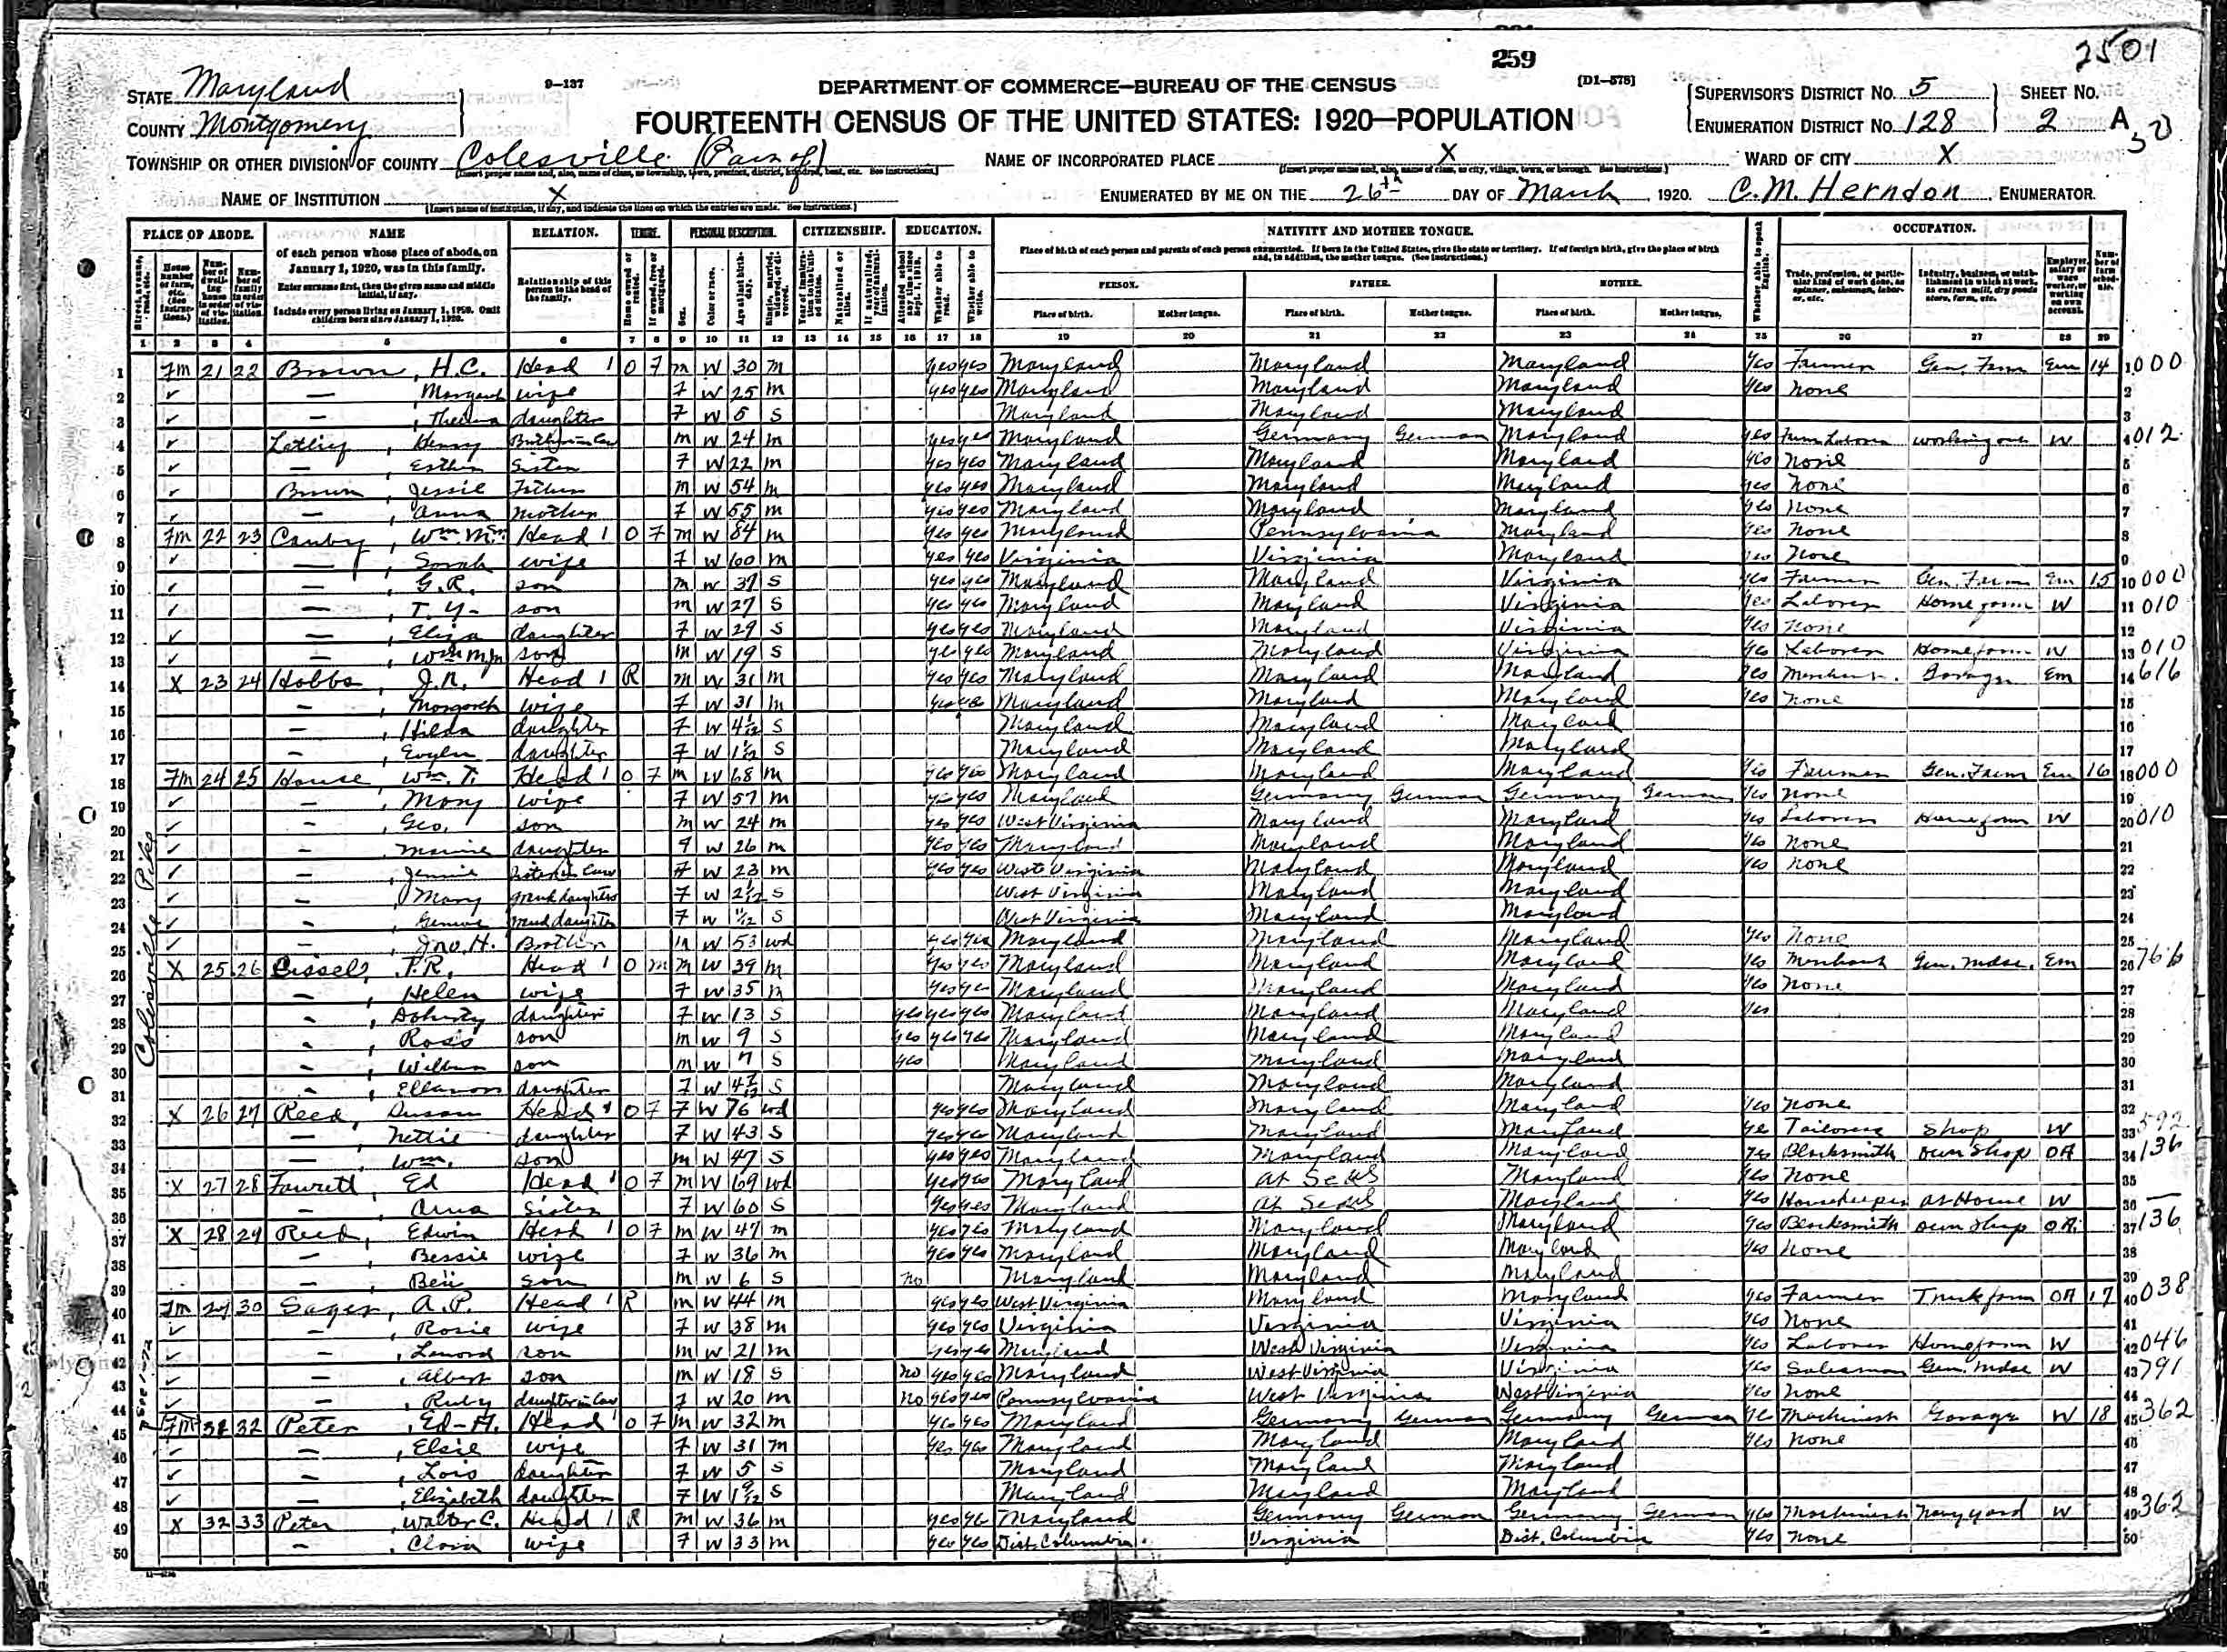 259
2501
STATE Maryland
9—137
DEPARTMENT OF COMMERCE—BUREAU OF THE CENSUS
[D1—578]
SUPERVISOR'S DISTRICT NO. 5 SHEET NO.
COUNTY Montgomery
FOURTEENTH CENSUS OF THE UNITED STATES: 1920—POPULATION
ENUMERATION DISTRICT NO. 128 2 A
TOWNSHIP OR OTHER DIVISION OF COUNTY Colesville (Part of) NAME OF INCORPORATED PLACE X WARD OF CITY X
NAME OF INSTITUTION X ENUMERATED BY ME ON THE 26th DAY OF March, 1920. C. M. Herndon, ENUMERATOR.
PLACE OF ABODE. NAME RELATION. TENURE. PERSONAL DESCRIPTION. CITIZENSHIP. EDUCATION. NATIVITY AND MOTHER TONGUE. OCCUPATION.
of each person whose place of abode on January 1, 1920, was in this family.
Enter surname first, then the given name and middle initial, if any.
Include every person living on January 1, 1920. Omit children born since January 1, 1920.
Relationship of this person to the head of the family.
Place of birth of each person and parents of each person enumerated. If born in the United States, give the state or territory. If of foreign birth, give the place of birth and, in addition, the mother tongue. (See instructions.)
PERSON. FATHER. MOTHER.
Place of birth. Mother tongue. Place of birth. Mother tongue. Place of birth. Mother tongue.
1 2 3 4 5 6 7 8 9 10 11 12 13 14 15 16 17 18 19 20 21 22 23 24 25 26 27 28 29
1 Fm 21 22 Brown, H.C. Head 1 O F m W 30 m yes yes Maryland Maryland Maryland yes Farmer Gen. Farm Em 14 1 000
2 — Margaret wife F W 25 m yes yes Maryland Maryland Maryland yes none 2
3 —, Thelma daughter F W 5 S Maryland Maryland Maryland 3
4 Henry Brother in law m W 24 m yes yes Maryland Germany German Maryland yes Farm Laborer working out W 4 012
5 —, Esther Sister F W 22 m yes yes Maryland Maryland Maryland yes none 5
6 Brown, Jessie Father m W 54 m yes yes Maryland Maryland Maryland yes none 6
7 —, Anna mother F W 55 m yes yes Maryland Maryland Maryland yes none 7
8 Fm 22 23 Canby, Wm M. Sr. Head 1 O F m W 84 m yes yes Maryland Pennsylvania Maryland yes none 8
9 —, Sarah wife F W 60 m yes yes Virginia Virginia Maryland yes none 9
10 —, G.R. son m W S yes yes Maryland Maryland Virginia yes Farmer Gen. Farm Em 15 10 000
11 —, T. Y. son m W 27 S yes yes Maryland Maryland Virginia yes Laborer Home farm W 11 010
12 —, Eliza daughter F W 29 S yes yes Maryland Maryland Virginia yes none 12
13 —, Wm M Jr son m W 19 S yes yes Maryland Maryland Virginia yes Laborer Home farm W 13 010
14 X 23 24 Hobbs, J.R. Head 1 R m W 31 m yes yes Maryland Maryland Maryland yes Merchant Garage Em 14 616
15 —, Margaret wife F W 31 m yes yes Maryland Maryland Maryland yes none 15
16 —, Hilda daughter F W S Maryland Maryland Maryland 16
17 —, Evylen daughter F W S Maryland Maryland Maryland 17
18 Fm 24 25 House, Wm. T. Head 1 O F m W 68 m yes yes Maryland Maryland Maryland yes Farmer Gen. Farm Em 16 18 000
19 —, Mary wife F W 57 m yes yes Maryland Germany German Germany German yes none 19
20 —, Geo. son m W 24 m yes yes West Virginia Maryland Maryland yes Laborer Home farm W 20 010
21 —, daughter F W 26 m yes yes Maryland Maryland Maryland yes none 21
22 —, Jennie Sister in law F W 23 m yes yes West Virginia Maryland Maryland yes none 22
23 —, Mary grand daughter F W S West Virginia Maryland Maryland 23
24 —, grand daughter F W S West Virginia Maryland Maryland 24
25 —, Jno. H. Brother m W 53 wd yes yes Maryland Maryland Maryland yes none 25
26 X 25 26 Cissel, P.R. Head 1 O m m W 39 m yes yes Maryland Maryland Maryland yes Merchant Gen. mdse. Em 26 766
27 —, Helen wife F W 35 m yes yes Maryland Maryland Maryland yes none 27
28 —, daughter F W 13 S yes yes yes Maryland Maryland Maryland yes 28
29 —, Ross son m W 9 S yes yes yes Maryland Maryland Maryland 29
30 —, Wilbur son m W 7 S yes Maryland Maryland Maryland 30
31 —, Elleanor daughter F W S Maryland Maryland Maryland 31
32 X 26 27 Reed, Susan Head 1 O F F W 76 wd yes yes Maryland Maryland Maryland yes none 32
33 —, Nettie daughter F W 43 S yes yes Maryland Maryland Maryland yes Tailoress Shop W 33 592
34 —, Wm. son m W 47 S yes yes Maryland Maryland Maryland yes Blacksmith own Shop OA 34 136
35 X 27 28 Fawcett, Ed Head 1 O F m W 69 wd yes yes Maryland At Seas Maryland yes none 35
36 —, Anna Sister F W 60 S yes yes Maryland At Seas Maryland yes Housekeeper at Home W 36 —
37 X 28 29 Reed, Edwin Head 1 O F m W 47 m yes yes Maryland Maryland Maryland yes Blacksmith own shop OA 37 136
38 —, Bessie wife F W 36 m yes yes Maryland Maryland Maryland yes none 38
39 —, Ben son m W 6 S no Maryland Maryland Maryland 39
40 Fm 29 30 Sager, A.P. Head 1 R m W 44 m yes yes West Virginia Maryland Maryland yes Farmer Truck farm OA 17 40 038
41 —, Rosie wife F W 38 m yes yes Virginia Virginia Virginia yes none 41
42 —, Lenord son m W 21 m yes yes Maryland West Virginia Virginia yes Laborer Home farm W 42 046
43 —, Albert son m W 18 S no yes yes Maryland West Virginia Virginia yes Salesman Gen. mdse W 43 791
44 —, Ruby daughter in law F W 20 m no yes yes Pennsylvania West Virginia West Virginia yes none 44
45 Fm 31 32 Peter, Ed-H. Head 1 O F m W 32 m yes yes Maryland Germany German Germany German yes Machinist Garage W 18 45 362
46 —, Elsie wife F W 31 m yes yes Maryland Maryland Maryland yes none 46
47 —, Lois daughter F W 5 S Maryland Maryland Maryland 47
48 —, Elizabeth daughter F W S Maryland Maryland Maryland 48
49 X 32 33 Peter, Walter C. Head 1 R m W 36 m yes yes Maryland Germany German Germany German yes Machinist Navy yard W 49 362
50 —, wife F W 33 m yes yes Dist. Columbia Virginia Dist. Columbia yes none 50
Colesville Pike